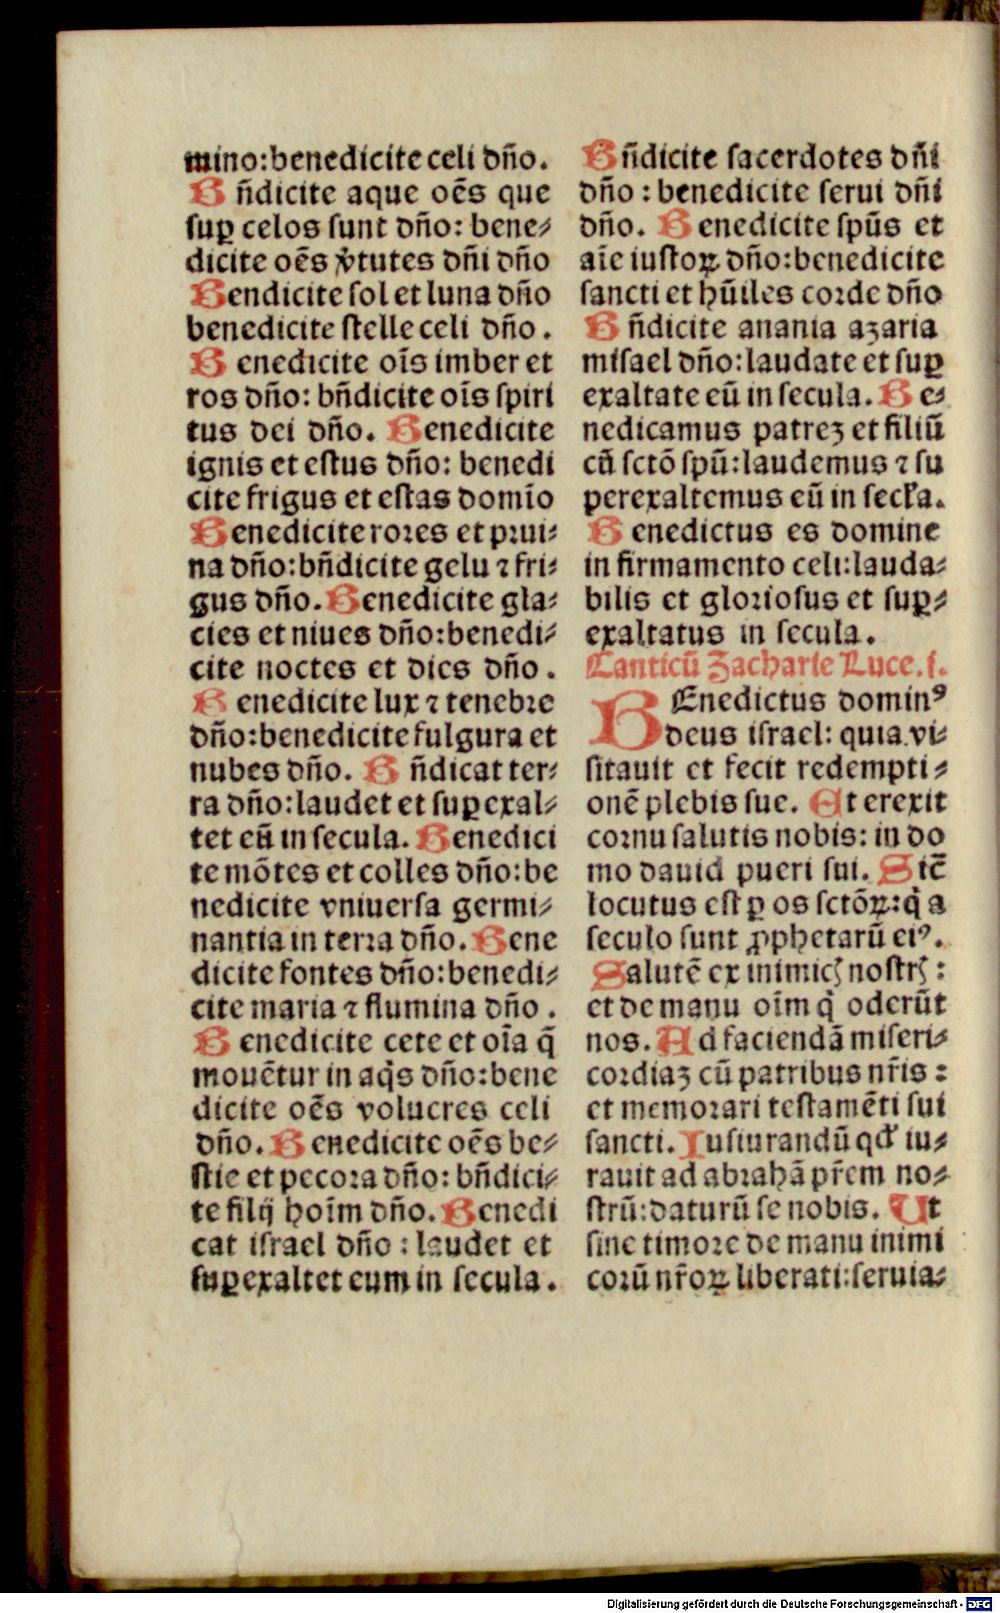 mino:benedicite celi dn̄o.
Bn̄dicite aque oēs que
suꝑ celos sunt dn̄o: bene⸗
dicite oēs v̓tutes dn̄i dn̄o
Bendicite sol et luna dn̄o
benedicite stelle celi dn̄o.
Benedicite oīs imber et
ros dn̄o: bn̄dicite oīs spiri
tus dei dn̄o. Benedicite
ignis et estus dn̄o: benedi
cite frigus et estas domīo
Benedicite rores et prui⸗
na dn̄o:bn̄dicite gelu ⁊ fri⸗
gus dn̄o. Benedicite gla⸗
cies et niues dn̄o:benedi⸗
cite noctes et dies dn̄o.
Benedicite lux ⁊ tenebre
dn̄o:benedicite fulgura et
nubes dn̄o. Bn̄dicat ter⸗
ra dn̄o:laudet et suꝑexal⸗
tet eū in secula. Benedici
te mōtes et colles dn̄o:be
nedicite vniuersa germi⸗
nantia in terra dn̄o. Bene
dicite fontes dn̄o:benedi⸗
cite maria ⁊ flumina dn̄o.
Benedicite cete et oīa q̄
mouētur in aqͥs dn̄o:bene
dicite oēs volucres celi
dn̄o. Benedicite oēs be⸗
stie et pecora dn̄o: bn̄dici⸗
te filij hoīm dn̄o. Benedi
cat israel dn̄o: laudet et
suꝑexaltet eum in secula.
Bn̄dicite sacerdotes dn̄i
dn̄o: benedicite serui dn̄i
dn̄o. Benedicite spūs et
aīe iustoꝝ dn̄o:benedicite
sancti et hūiles corde dn̄o
Bn̄dicite anania azaria
misael dn̄o:laudate et suꝑ
exaltate eū in secula. Be⸗
nedicamus patreꝫ et filiū
cū sctō spū:laudemus ⁊ su
perexaltemus eū in secl̓a.
Benedictus es domine
in firmamento celi:lauda⸗
bilis et gloriosus et suꝑ⸗
exaltatus in secula.
Canticū Zacharie Luce.j.
BEnedictus dominꝰ
deus israel: quia vi⸗
sitauit et fecit redempti⸗
onē plebis sue. Et erexit
cornu salutis nobis: in do
mo dauid pueri sui. Sic̄
locutus est ꝑ os sctōꝝ:qͥ a
seculo sunt ꝓphetarū eiꝰ.
Salutē ex inimicꝭ nostrꝭ:
et de manu oīm qͥ oderūt
nos. Ad faciendā miseri⸗
cordiaꝫ cū patribus nr̄is:
et memorari testamēti sui
sancti. Iusiurandū qd̓ iu⸗
rauit ad abrahā pr̄em no⸗
strū:daturū se nobis. Ut
sine timore de manu inimi
corū nr̄oꝝ liberati:seruia⸗
Digitalisierung gefördert durch die Deutsche Forschungsgemeinschaft - DFG